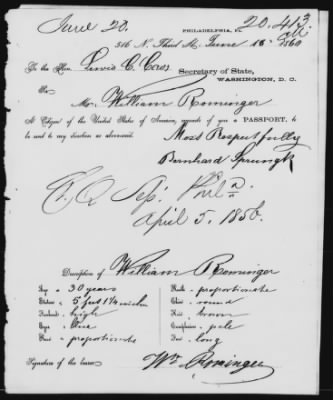 June 20. 20,413
PHILADELPHIA,
516 N. Third St. June 18 1860
To the Hon. Lewis C. Cass
Secretary of State,
WASHINGTON, D. C.
Sir
Mr. William Rominger
A Citizen of the United States of America, requests of you a PASSPORT, to
be sent to my direction as aforesaid.
Most Respectfully
Bernhard Sprungk
Phila
April 5. 1856.
Description of William Rominger
Age 30 years Mouth proportionate
Stature 5 feet 1 1/4 inches Chin round
Forehead high Hair brown
Eyes blue Complexion pale
Nose proportionate Face long
Signature of the bearer Wm Rominger